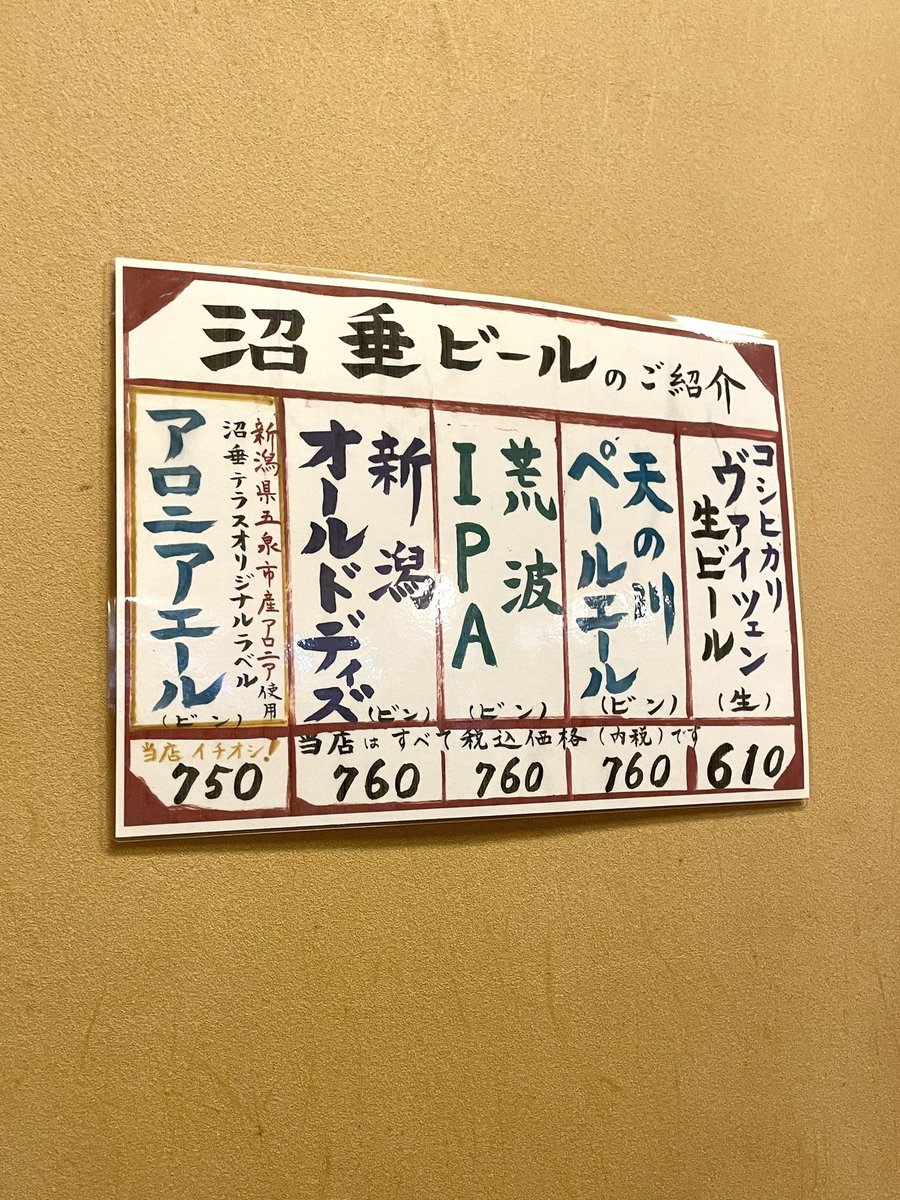 沼垂ビールのご紹介
コシヒカリ
ヴァイツェン
生ビール
(生)
610
天の川
ペールエール
(ビン)
760
荒波
IPA
(ビン)
760
新潟
オールドディズ
(ビン)
760
新潟県五泉市産アロニア使用
沼垂テラスオリジナルラベル
アロニアエール
(ビン)
当店イチオシ!
750
当店はすべて税込価格(内税)です